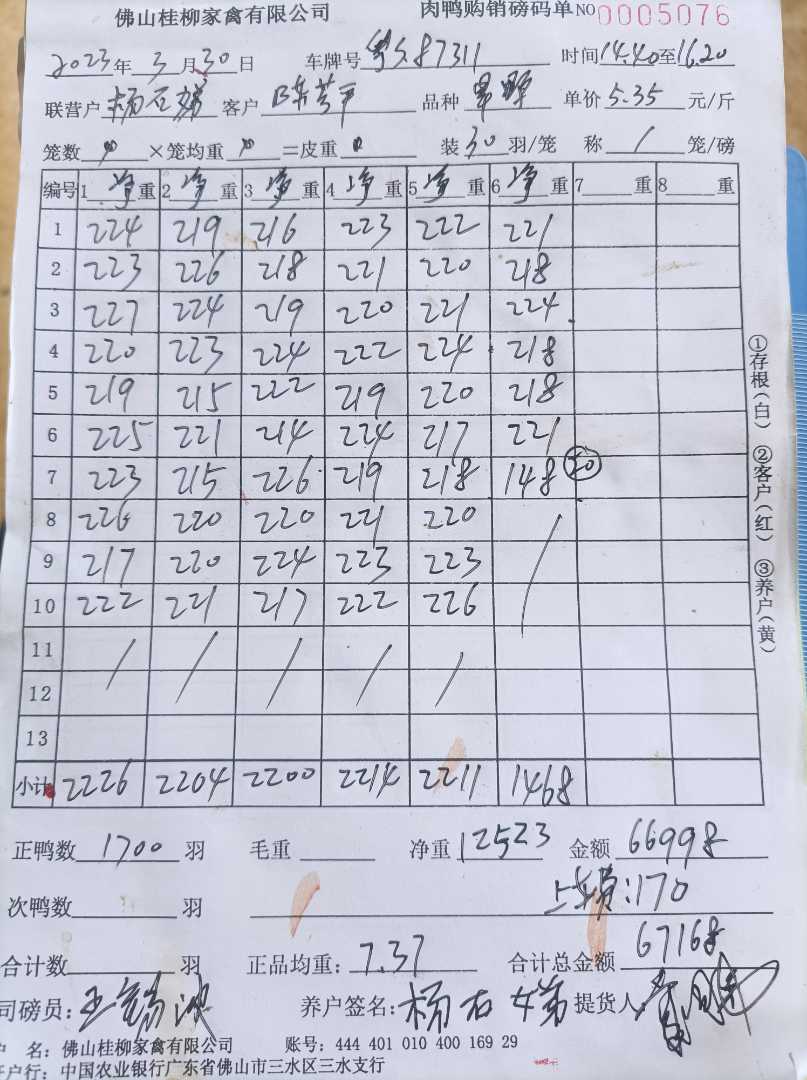 佛山桂柳家禽有限公司 肉鸭购销磅码单NO0005076
2023年3月30日 车牌号 87311 时间14.40至16.20
联营户 杨 娣 客户 陈芳平 品种 单价5.35元/斤
笼数 ×笼均重 =皮重 装30羽/笼 称/笼/磅
编号 1净重 2净重 3净重 4净重 5净重 6净重 7 重 8 重
1 224 219 216 223 222 221
2 223 226 218 221 220 218
3 227 224 219 220 221 224
4 220 223 224 222 224 218
5 219 215 222 219 220 218
6 225 221 214 224 217 221
7 223 215 226 219 218 148 20
8 226 220 220 221 220 /
9 217 220 224 223 223
10 222 221 217 222 226
11 / / / / /
12
13
小计 2226 2204 2200 2214 2211 1468
正鸭数1700羽 毛重 净重12523 金额66998
次鸭数 羽 上车费:170
合计数 羽 正品均重:7.37 合计总金额67168
司磅员: 养户签名:杨 娣 提货人:
户 名:佛山桂柳家禽有限公司 账号:444 401 010 400 169 29
开户行:中国农业银行广东省佛山市三水区三水支行
①存根(白) ②客户(红) ③养户(黄)